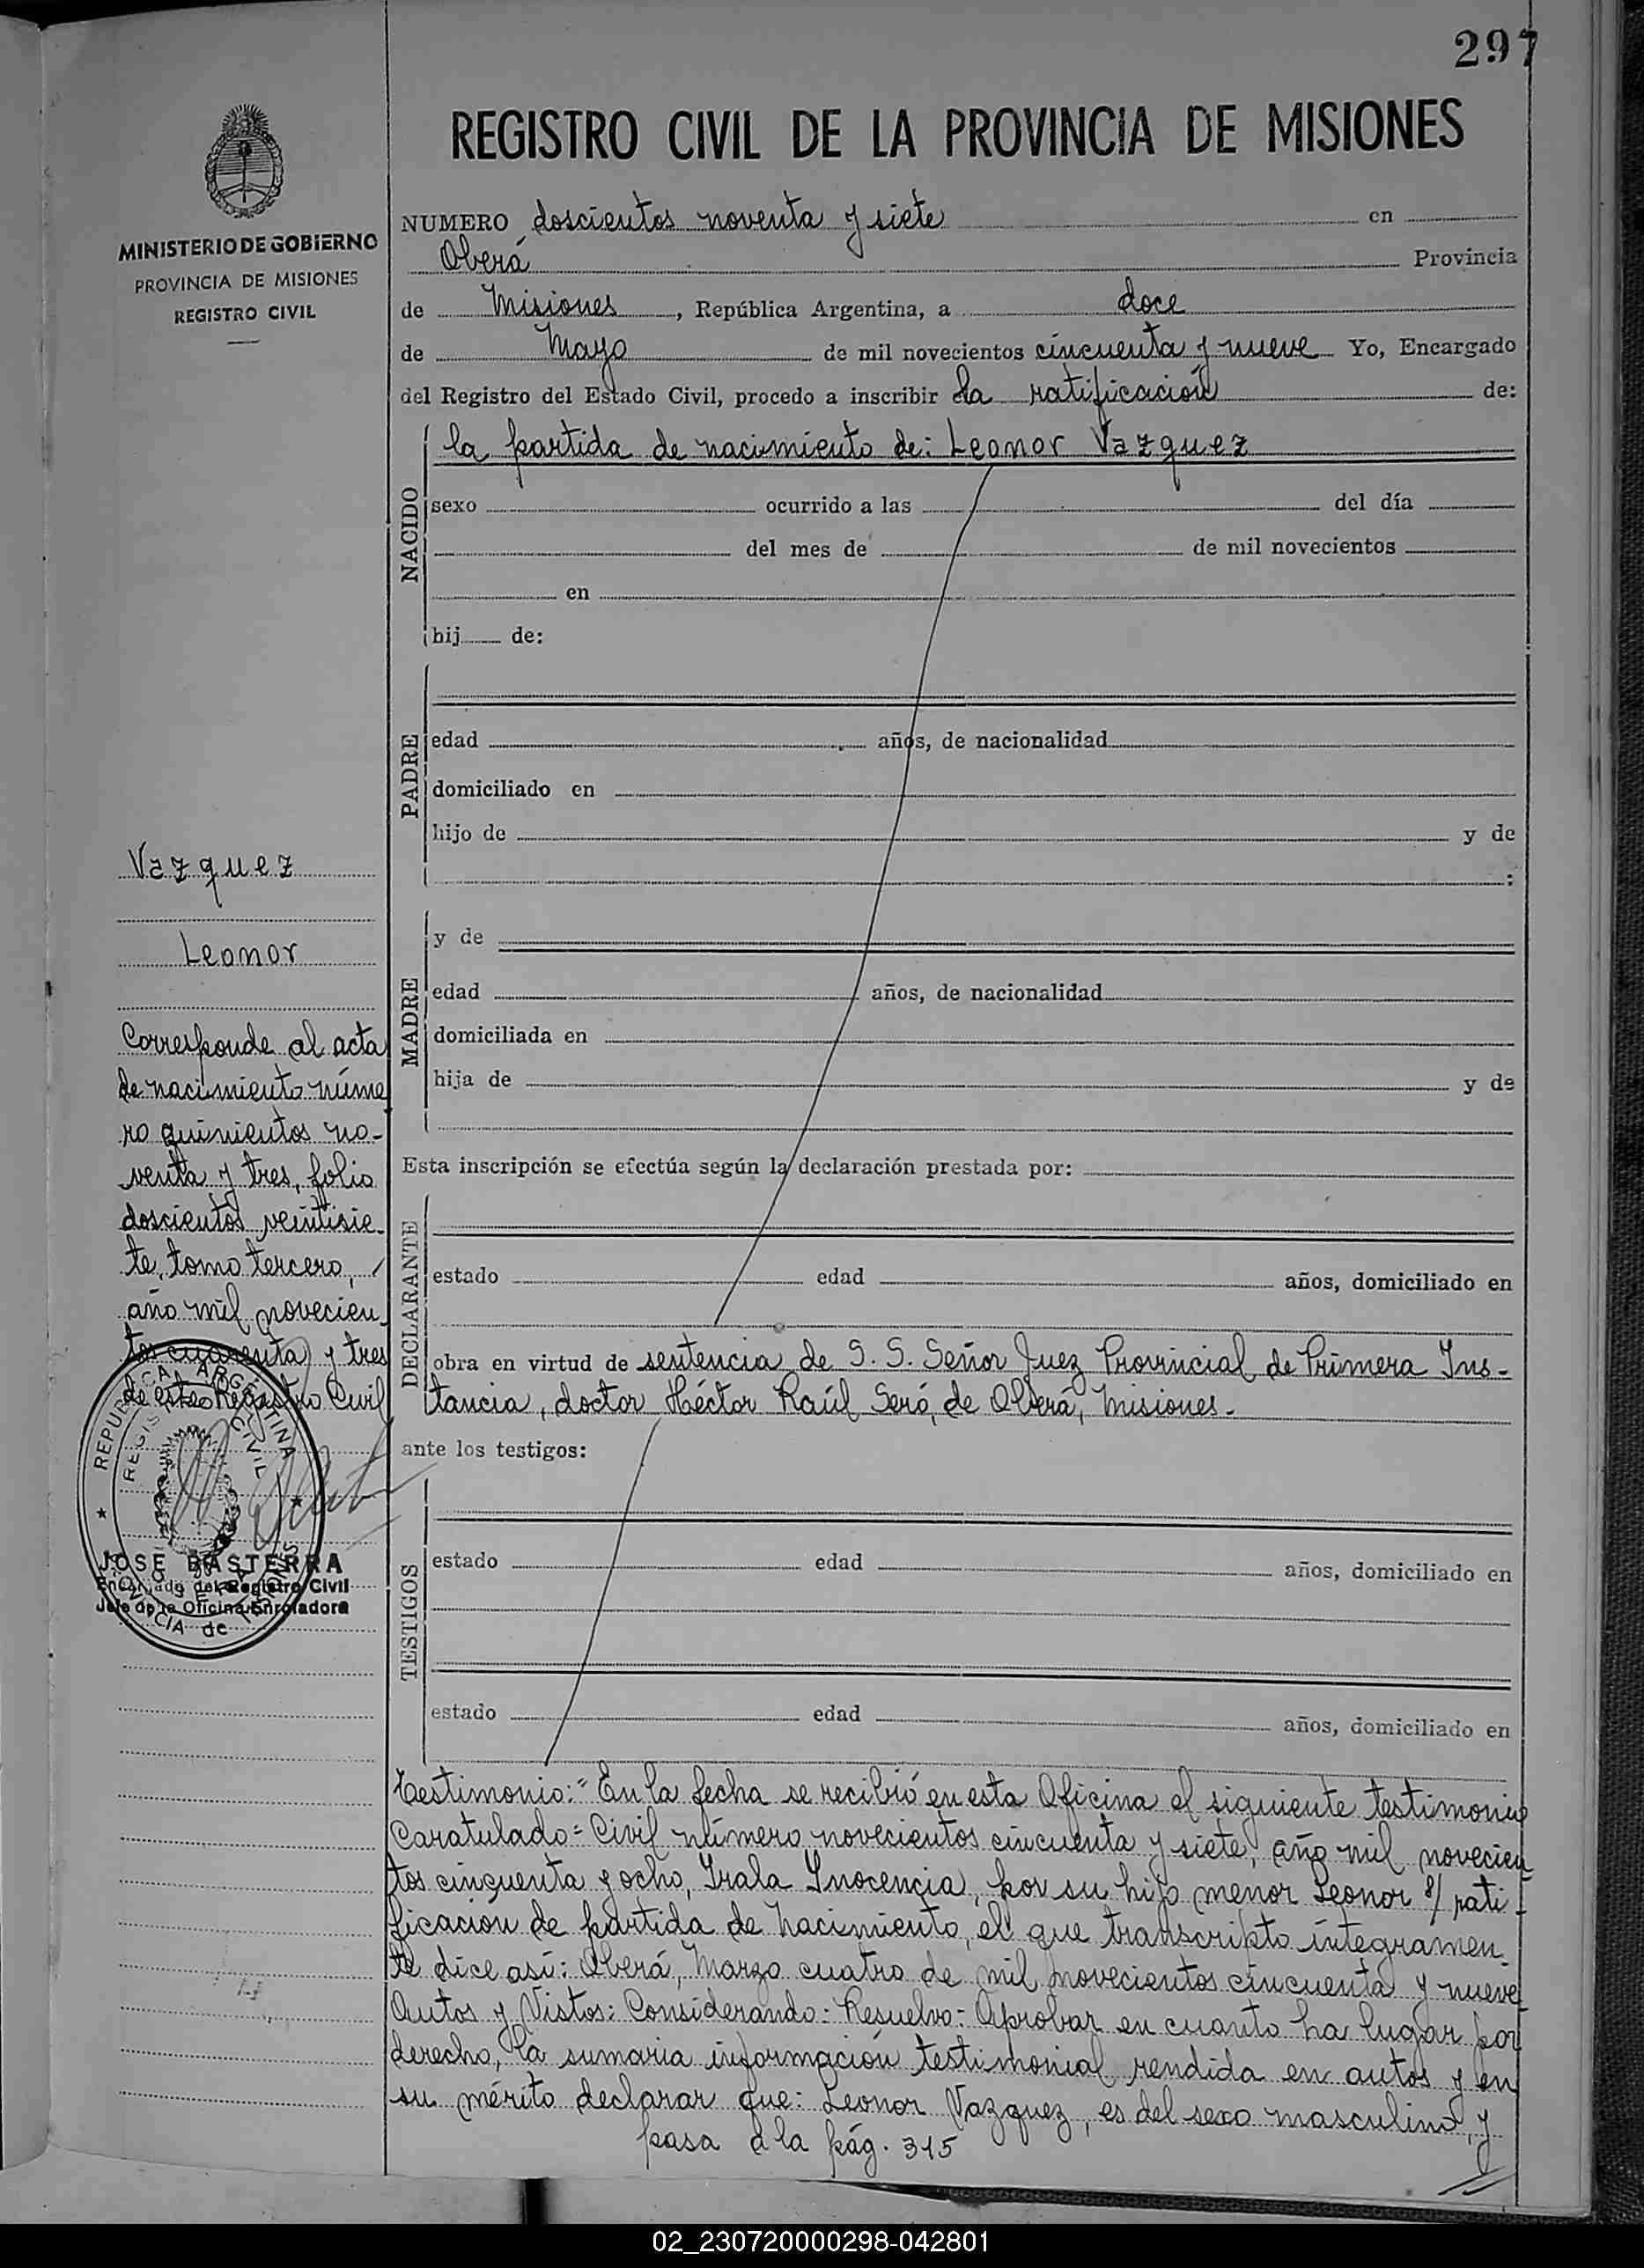 297
REGISTRO CIVIL DE LA PROVINCIA DE MISIONES
MINISTERIO DE GOBIERNO
PROVINCIA DE MISIONES
REGISTRO CIVIL
NUMERO doscientos noventa y siete en
Oberá Provincia
de Misiones, República Argentina, a doce
de Mayo de mil novecientos cincuenta y nueve Yo, Encargado
del Registro del Estado Civil, procedo a inscribir la ratificación de:
NACIDO
la partida de nacimiento de: Leonor Vazquez
sexo ocurrido a las del día
del mes de de mil novecientos
en
hij de:
PADRE
edad años, de nacionalidad
domiciliado en
hijo de y de
:
MADRE
y de
edad años, de nacionalidad
domiciliada en
hija de y de
Esta inscripción se efectúa según la declaración prestada por:
DECLARANTE
estado edad años, domiciliado en
obra en virtud de sentencia de S. S. Señor Juez Provincial de Primera Ins-
tancia, doctor Héctor Raúl Seró, de Oberá, Misiones.
ante los testigos:
TESTIGOS
estado edad años, domiciliado en
estado edad años, domiciliado en
Testimonio:" En la fecha se recibió en esta Oficina el siguiente testimonio
Caratulado= Civil número novecientos cincuenta y siete, año mil novecien
tos cincuenta y ocho, Irala Inocencia, por su hijo menor Leonor s/ rati-
ficación de partida de nacimiento, el que transcripto íntegramen
te dice así: Oberá, Marzo cuatro de mil novecientos cincuenta y nueve
Autos y Vistos: Considerando: Resuelvo: Aprobar en cuanto ha lugar por
derecho, la sumaria información testimonial rendida en autos y en
su mérito declarar que: Leonor Vazquez, es del sexo masculino, y
pasa a la pág. 315
Vazquez
Leonor
Corresponde al acta
de nacimiento núme
ro quinientos no-
venta y tres, folio
doscientos veintisie-
te, tomo tercero,
año mil novecien
tos cuarenta y tres
de este Registro Civil
REPUBLICA ARGENTINA
REGISTRO CIVIL
JOSE BASTERRA
Encargado del Registro Civil
Jefe de la Oficina Enroladora
02_230720000298-042801